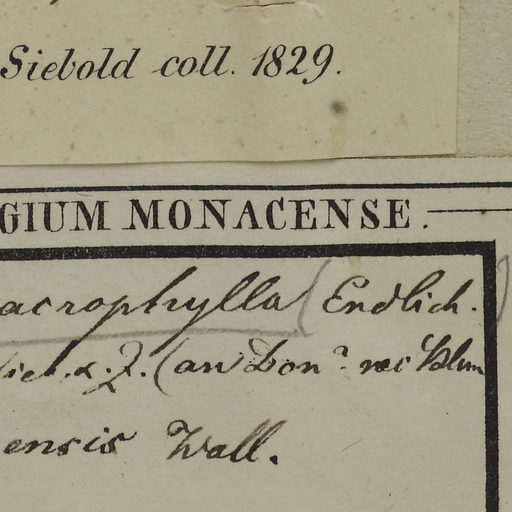 Siebold coll. 1829.
GIUM MONACENSE.
acrophylla (Endlich.)
(an Don? nec Blum
ensis Wall.